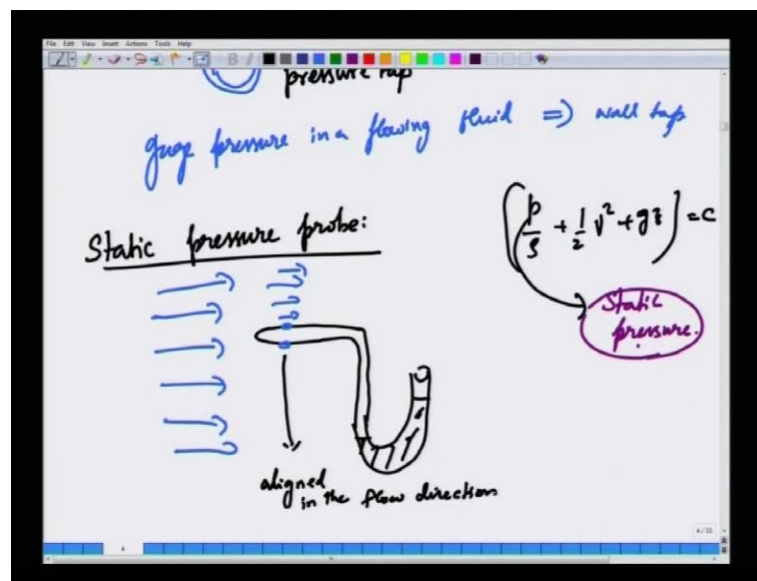 File Edit View Insert Actions Tools Help
pressure tap
guage pressure in a flowing fluid ⇒ wall taps
Static pressure probe:
(p/ρ + 1/2 v² + gz) = c
Static
pressure.
aligned
in the flow direction
4/55
4